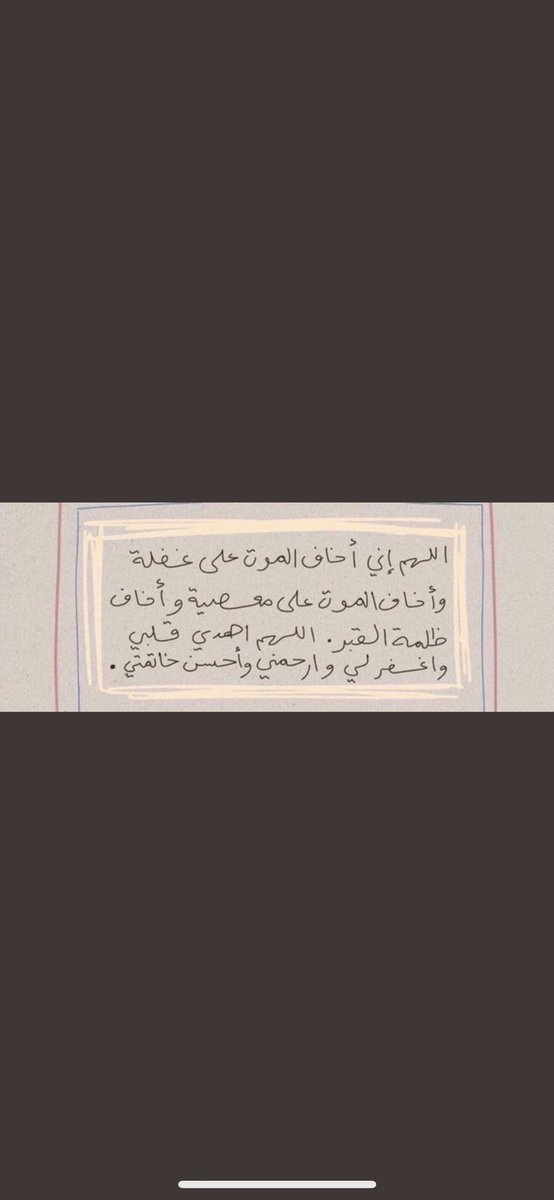 اللهم إني أخاف الموت على غفلة
وأخاف الموت على معصية و أخاف
ظلمة القبر. اللهم اهدي قلبي
واغفر لي و ارحمني وأحسن خاتمتي.